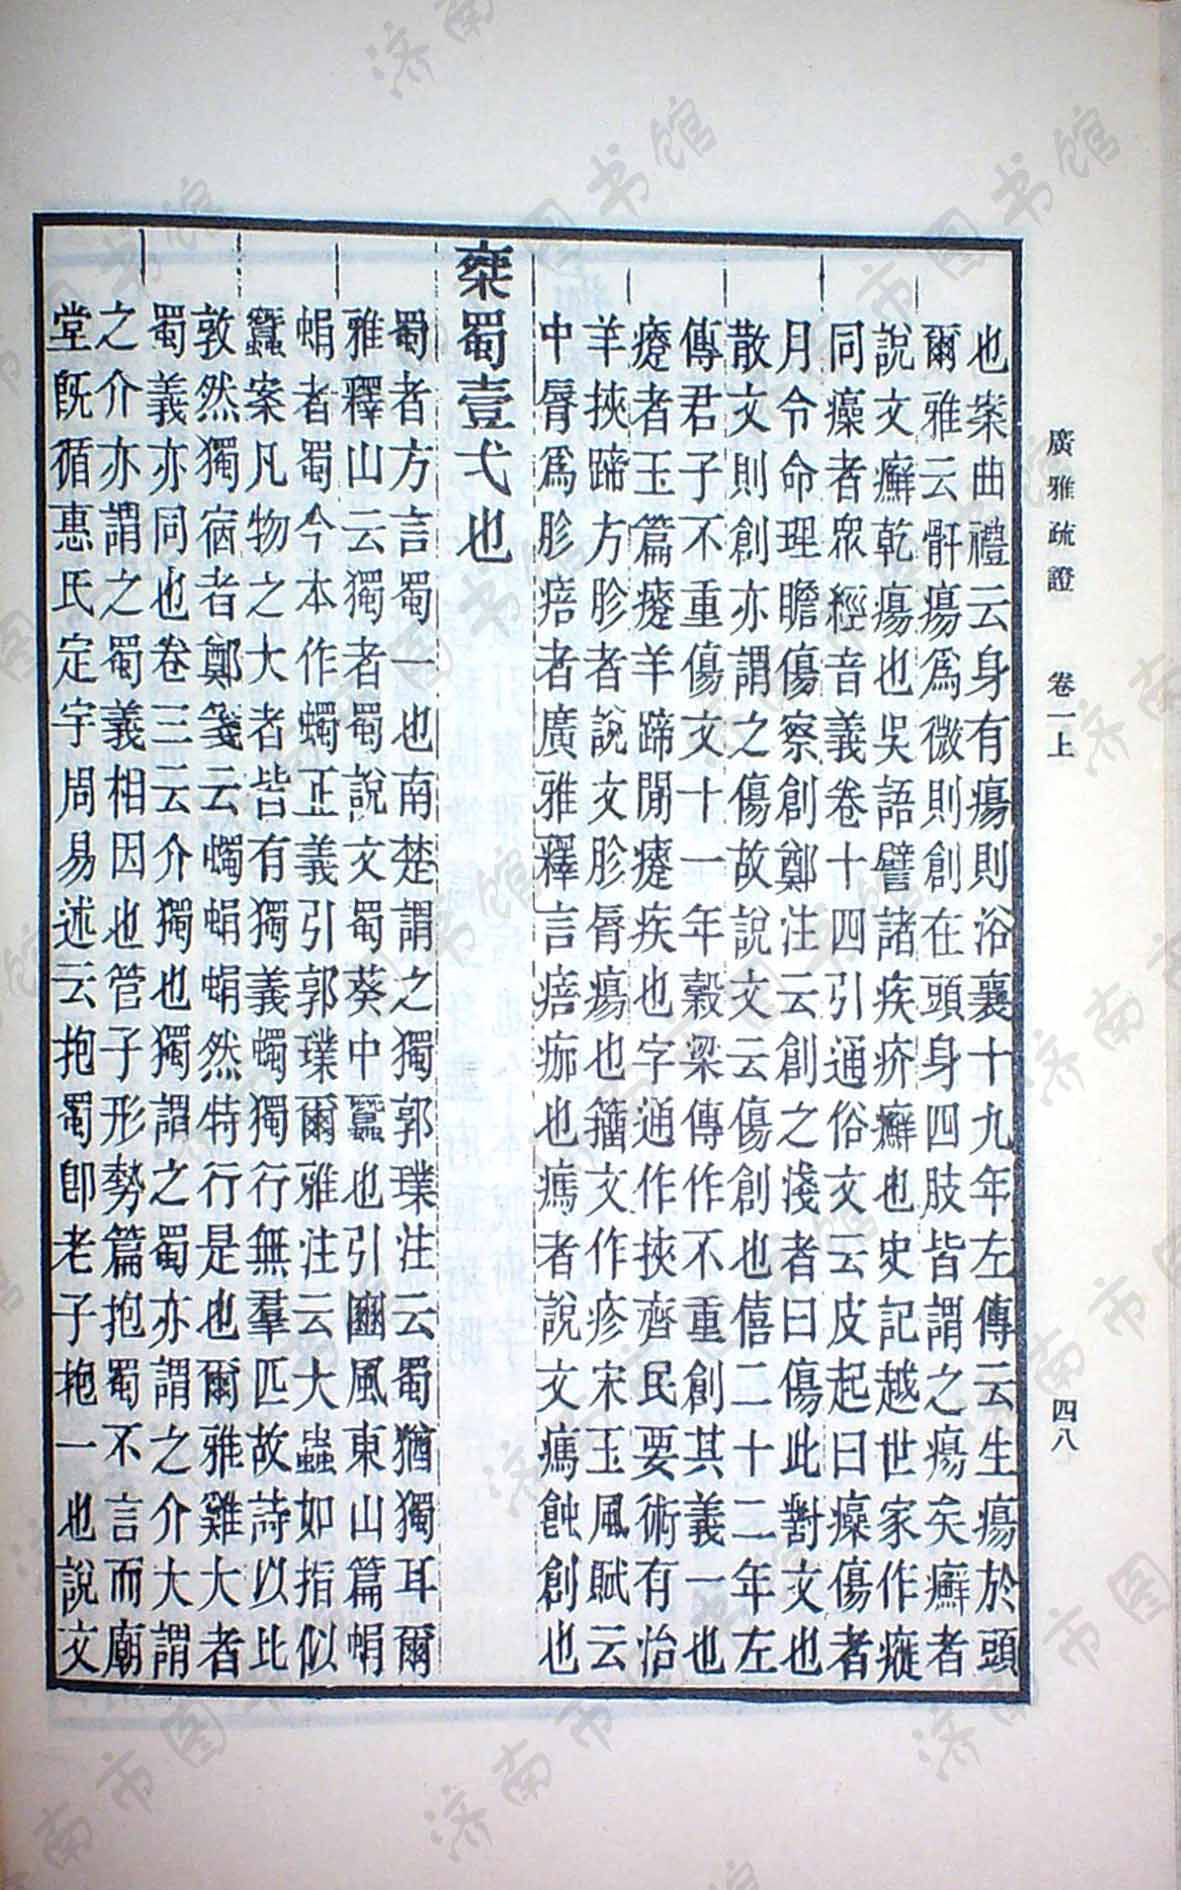 廣雅疏證　卷一上　四八
也案曲禮云身有瘍則浴襄十九年左傳云生瘍於頭
爾雅云骭瘍爲微則創在頭身四肢皆謂之瘍矣癬者
說文癬乾瘍也吳語譬諸疾疥癬也史記越世家作㿍
同癳者眾經音義卷十四引通俗文云皮起曰癳傷者
月令命理瞻傷察創鄭注云創之淺者曰傷此對文也
散文則創亦謂之傷故說文云傷創也僖二十二年左
傳君子不重傷文十一年穀梁傳作不重創其義一也
䟐者玉篇䟐羊蹄閒䟐疾也字通作挾齊民要術有治
羊挾蹄方胗者說文胗脣瘍也籀文作疹宋玉風賦云
中脣爲胗痦者廣雅釋言痦痂也㾺者說文㾺蝕創也
蜀壹弌也
蜀者方言蜀一也南楚謂之獨郭璞注云蜀猶獨耳爾
雅釋山云獨者蜀說文蜀葵中蠶也引豳風東山篇蜎
蜎者蜀今本作蠋正義引郭璞爾雅注云大蟲如指似
蠶案凡物之大者皆有獨義蠋獨行無羣匹故詩以比
敦然獨宿者鄭箋云蠋蜎蜎然特行是也爾雅雞大者
蜀義亦同也卷三云介獨也獨謂之蜀亦謂之介大謂
之介亦謂之蜀義相因也管子形勢篇抱蜀不言而廟
堂既循惠氏定宇周易述云抱蜀卽老子抱一也說文
济南市图书馆